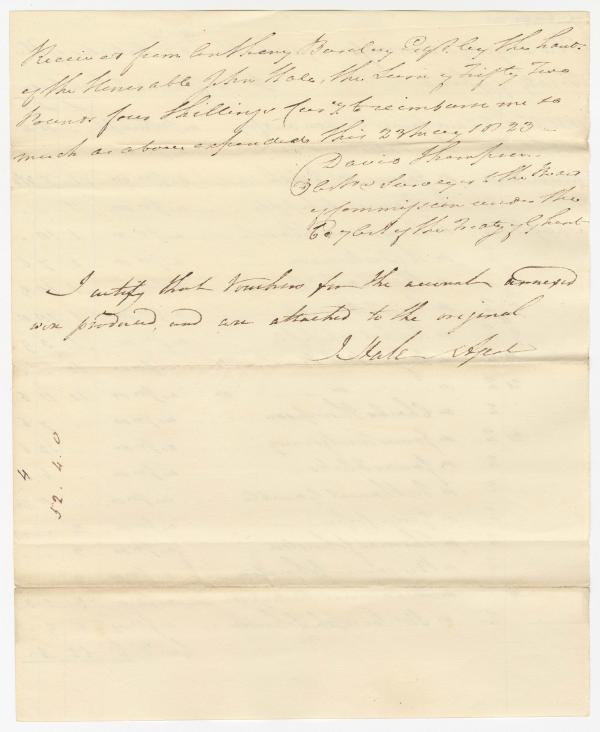 Received from Anthony Barclay Esqr. by the hands
of the Honorable John Hale, the Sum of Fifty Two
Pounds four Shillings Curcy to reimburse me so
much as above expended this 23 May 1823
David Thompson
Astr & Surveyor to the Board
of Commission under the
6 & 7 Art of the Treaty of Ghent
I certify that Vouchers for the account annexed
were produced, and are attached to the original
J Hale Agent
4
52. 4. 0